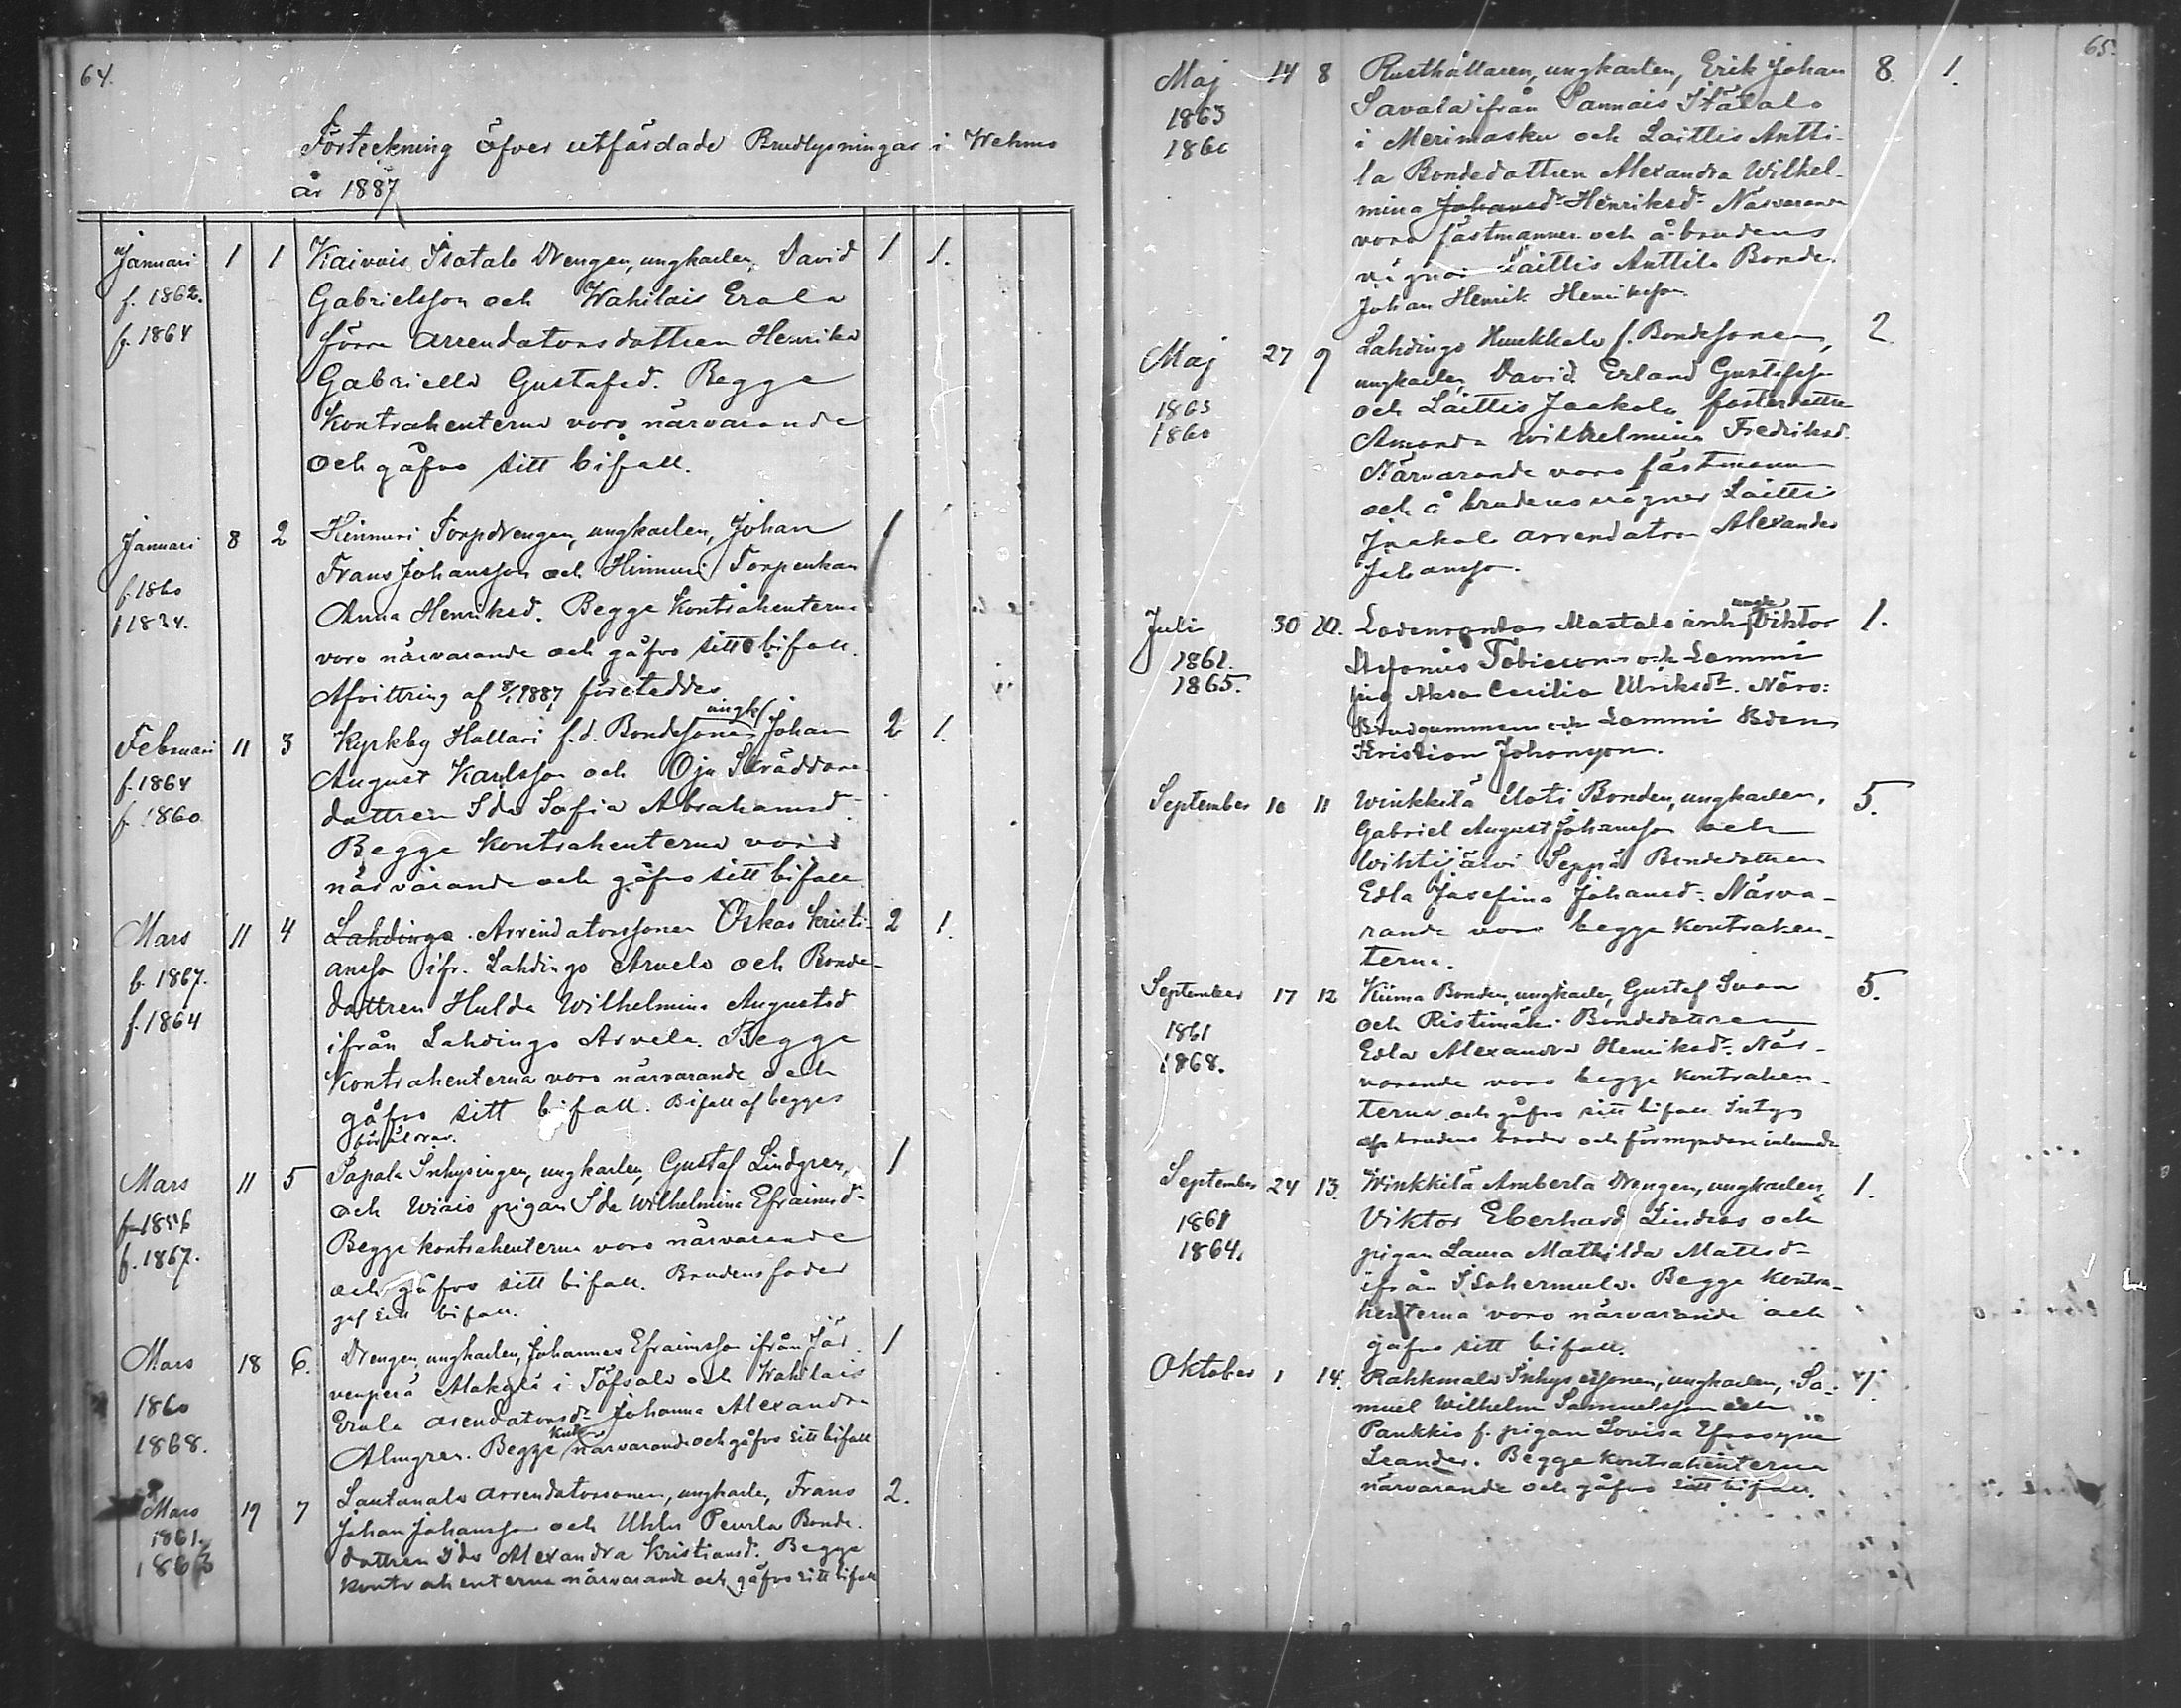 64.
Förteckning öfver utfärdade Brudlysningar i Wehmo
år 1887
Januari 1 1 Kaivois Isotalo Drengen, ungkarlen, David 1 1.
f. 1862. Gabrielsson och Wahilais Erala
f. 1864 förra arrendatorsdottren Henrika
Gabriella Gustafsd. Begge
Kontrahenterna voro närvarande
och gåfvo sitt bifall.
Januari 8 2 Hinnuri Torpdrengen, ungkarlen, Johan 1
f. 1860 Frans Johansson och Hinnuri Torpenkan
Anna Henriksd. Begge Kontrahenterna
voro närvarande och gåfvo sitt bifall.
Afvittring af 8/1 1887 företeddes
ungk
Februari 11 3 Kyrkby Hallari f.d. Bondesonen Johan 2 1.
f. 1864 August Karlsson och Oja Skräddare
f. 1860 dottren Ida Sofia Abrahamsd.
Begge Kontrahenterna voro
närvarande och gåfvo sitt bifall
Mars 11 4 Lahdingo Arrendatorssonen Oskar Kristi- 2 1.
f. 1867. ansson ifr. Lahdingo Arvela och Bonde-
f. 1864 dottren Hulda Wilhelmina Augustsd
ifrån Lahdingo Arvela. Begge
Kontrahenterna voro närvarande och
gåfvo sitt bifall. Bifall af begges
föräldrar.
Mars 11 5 Papala Inhysingen, ungkarlen, Gustaf Lindgren, 1
f. 1856 och Wiais pigan Ida Wilhelmina Efraimsd-
f. 1867. Begge kontrahenterna voro närvarande
och gåfvo sitt bifall. Brudens fader
gaf sitt bifall.
Mars 18 6. Drengen, ungkarlen, Johannes Efraimsson ifrån Jär- 1
1860 venperä Alakylä i Töfsala och Wahilais
1868. Erala arendatorsdr Johanna Alexandra
Almgren. Begge närvarande och gåfvo sitt bifall
Mars 19 7 Lautanala arrendatorsonen, ungkarlen, Frans 2.
1861. Johan Johansson och Uhlu Peurla Bonde-
1863 dottren Ida Alexandra Kristiansd. Begge
kontrahenterna närvarande och gåfvo sitt bifall
65.
Maj 14 8 Rusthållaren, ungkarlen, Erik Johan 8 1.
1863 Savala ifrån Sannais Ylätalo
186 i Merimasku och Laittis Antti-
la Bondedottren Alexandra Wilhel-
mina Johansd- Henriksd- Närvarande
voro fästmannen och å brudens
vägnar Laittis Anttila Bonden
Johan Henrik Henriksson.
Maj 27 9 Lahdingo Hunkkala f. Bondesonen, 2
ungkarlen, David Erland Gustafsson
1863 och Laittis Jaakola fosterdottren
1860 Amanda Wilhelmina Fredriksd.
Närvarande voro fästmannen
och å brudens vägnar Laittis
Jaakola arrendatorn Alexander
Johansson.
Juli 30 10. Mastala Viktor 1.
1861. Stefanus Tobiasson och Lammi
1865. pig Cecilia Ulriksdr. Närv:
Brudgummen och Lammi
Kristian Johansson.
September 10 11 Winkkilä Uoti Bonden, ungkarlen, 5.
Gabriel August Johansson och
Wihtijärvi Seppä Bondedottren
Edla Josefina Johansd- Närva-
rande voro begge Kontrahen-
terna.
September 17 12 Kiima Bonden, ungkarlen, Gustaf Svan 5.
1861 och Ristimäki Bondedottren
1868. Edla Alexandra Henriksd- När-
varande voro begge Kontrahen-
terna och gåfvo sitt bifall. Intyg
af brudens broder och förmyndare
September 24 13. Winkkilä Anberta Drengen, ungkarlen, 1.
1861 Viktor Eberhard Lindros och
1864. pigan Laura Mathilda Mattsd-
ifrån Isohermula. Begge Kontra-
henterna voro närvarande och
gåfvo sitt bifall.
Oktober 1 14. Rahkmala Inhysessonen, ungkarlen, Sa-
muel Wilhelm Samuelsson och
Pankkis f. pigan Lovisa Efrosyne
Leander. Begge kontrahenterna
närvarande och gåfvo sitt bifall.